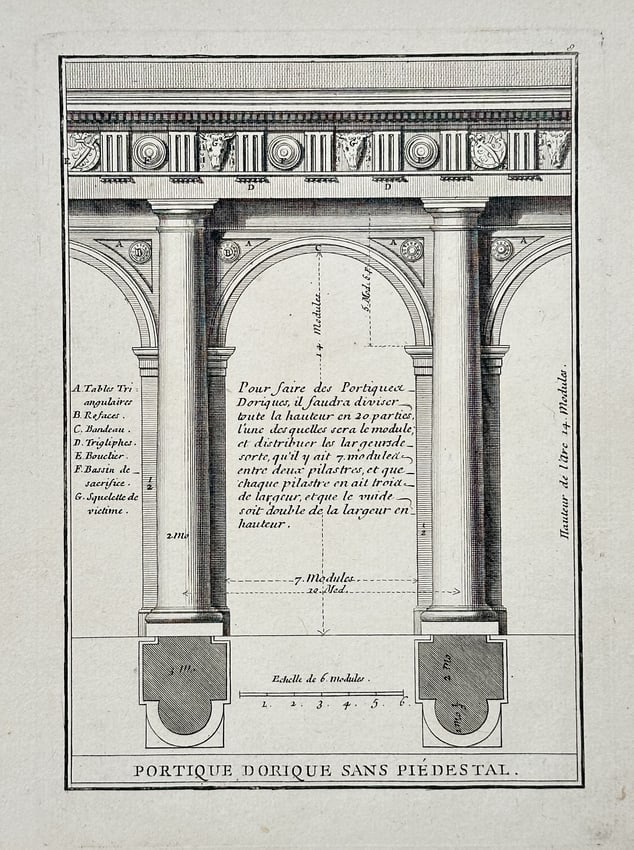 8
E
F
G
F
G
F
G
D
D
A
B
B
A
C
A
B
B
A
14 Modules
5. Mod. 6. p.
A. Tables Tri =
angulaires
B. Rosaces.
C. Bandeau.
D. Trigliphes.
E. Bouclier.
F. Bassin de
sacrifice.
G. Squelette de
victime.
Pour faire des Portiques
Doriques, il faudra diviser
toute la hauteur en 20 parties,
l'une desquelles sera le module,
et distribuer les largeurs de
sorte, qu'il y ait 7. modules
entre deux pilastres, et que
chaque pilastre en ait trois
de largeur, et que le vuide
soit double de la largeur en
hauteur.
Hauteur de l'Arc 14. Modules.
1/2
2 mo
1/2
7. Modules.
10. Mod.
3 mo
Echelle de 6 modules.
1. 2. 3. 4. 5. 6.
2 mo
PORTIQUE DORIQUE SANS PIÉDESTAL.